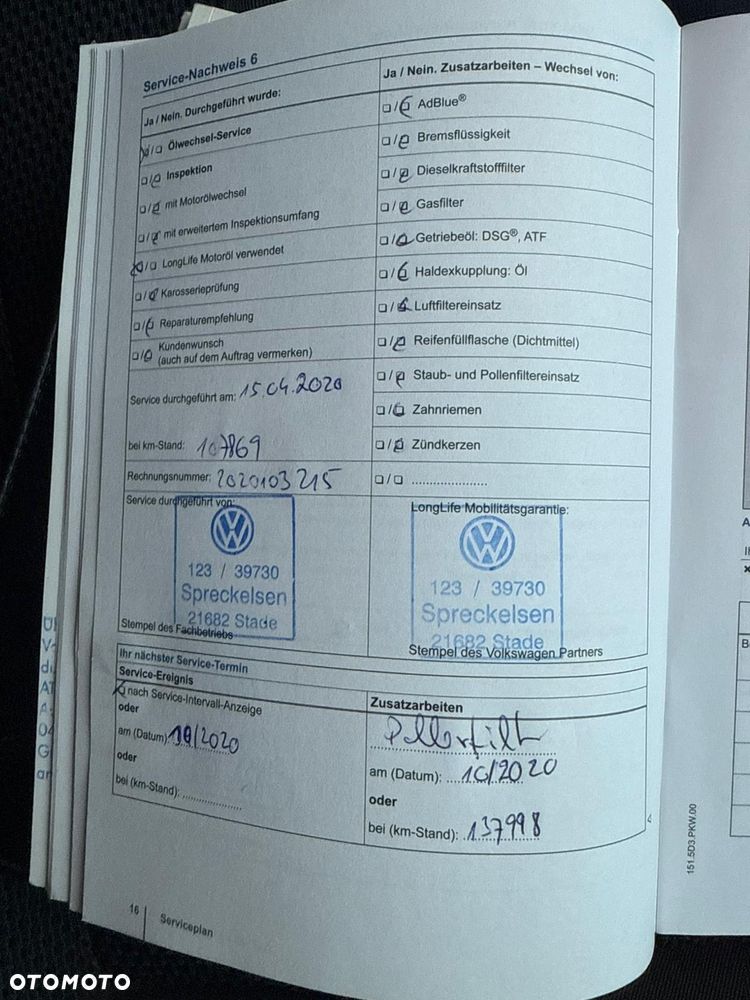 Service-Nachweis 6
Ja / Nein. Durchgeführt wurde:
☒/☐ Ölwechsel-Service
☐/☑ Inspektion
☐/☑ mit Motorölwechsel
☐/☑ mit erweitertem Inspektionsumfang
☒/☐ LongLife Motoröl verwendet
☐/☑ Karosserieprüfung
☐/☑ Reparaturempfehlung
☐/☑ Kundenwunsch
(auch auf dem Auftrag vermerken)
Service durchgeführt am: 15.04.2020
bei km-Stand: 107869
Rechnungsnummer: 2020103215
Service durchgeführt von:
123 / 39730
Spreckelsen
21682 Stade
Stempel des Fachbetriebs
Ja / Nein. Zusatzarbeiten – Wechsel von:
☐/☑ AdBlue®
☐/☑ Bremsflüssigkeit
☐/☑ Dieselkraftstofffilter
☐/☑ Gasfilter
☐/☑ Getriebeöl: DSG®, ATF
☐/☑ Haldexkupplung: Öl
☐/☑ Luftfiltereinsatz
☐/☑ Reifenfüllflasche (Dichtmittel)
☐/☑ Staub- und Pollenfiltereinsatz
☐/☑ Zahnriemen
☐/☑ Zündkerzen
☐/☐ .....................
LongLife Mobilitätsgarantie:
123 / 39730
Spreckelsen
21682 Stade
Stempel des Volkswagen Partners
Ihr nächster Service-Termin
Service-Ereignis
☒ nach Service-Intervall-Anzeige
oder
am (Datum): 10/2020
oder
bei (km-Stand): .................
Zusatzarbeiten
Pollenfilt
am (Datum): 10/2020
oder
bei (km-Stand): 137998
16
Serviceplan
151.5D3.PKW.00
OTOMOTO